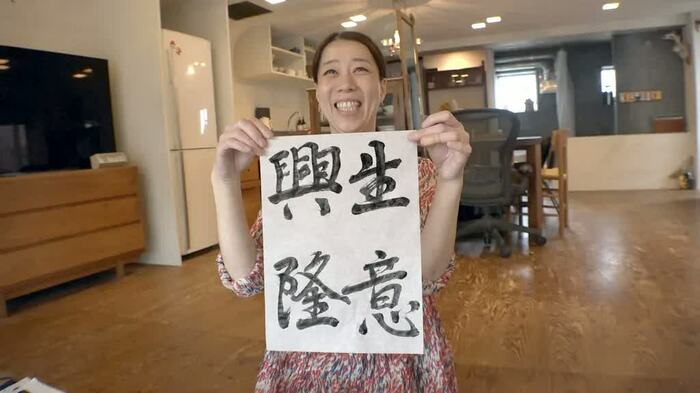 生意
興隆